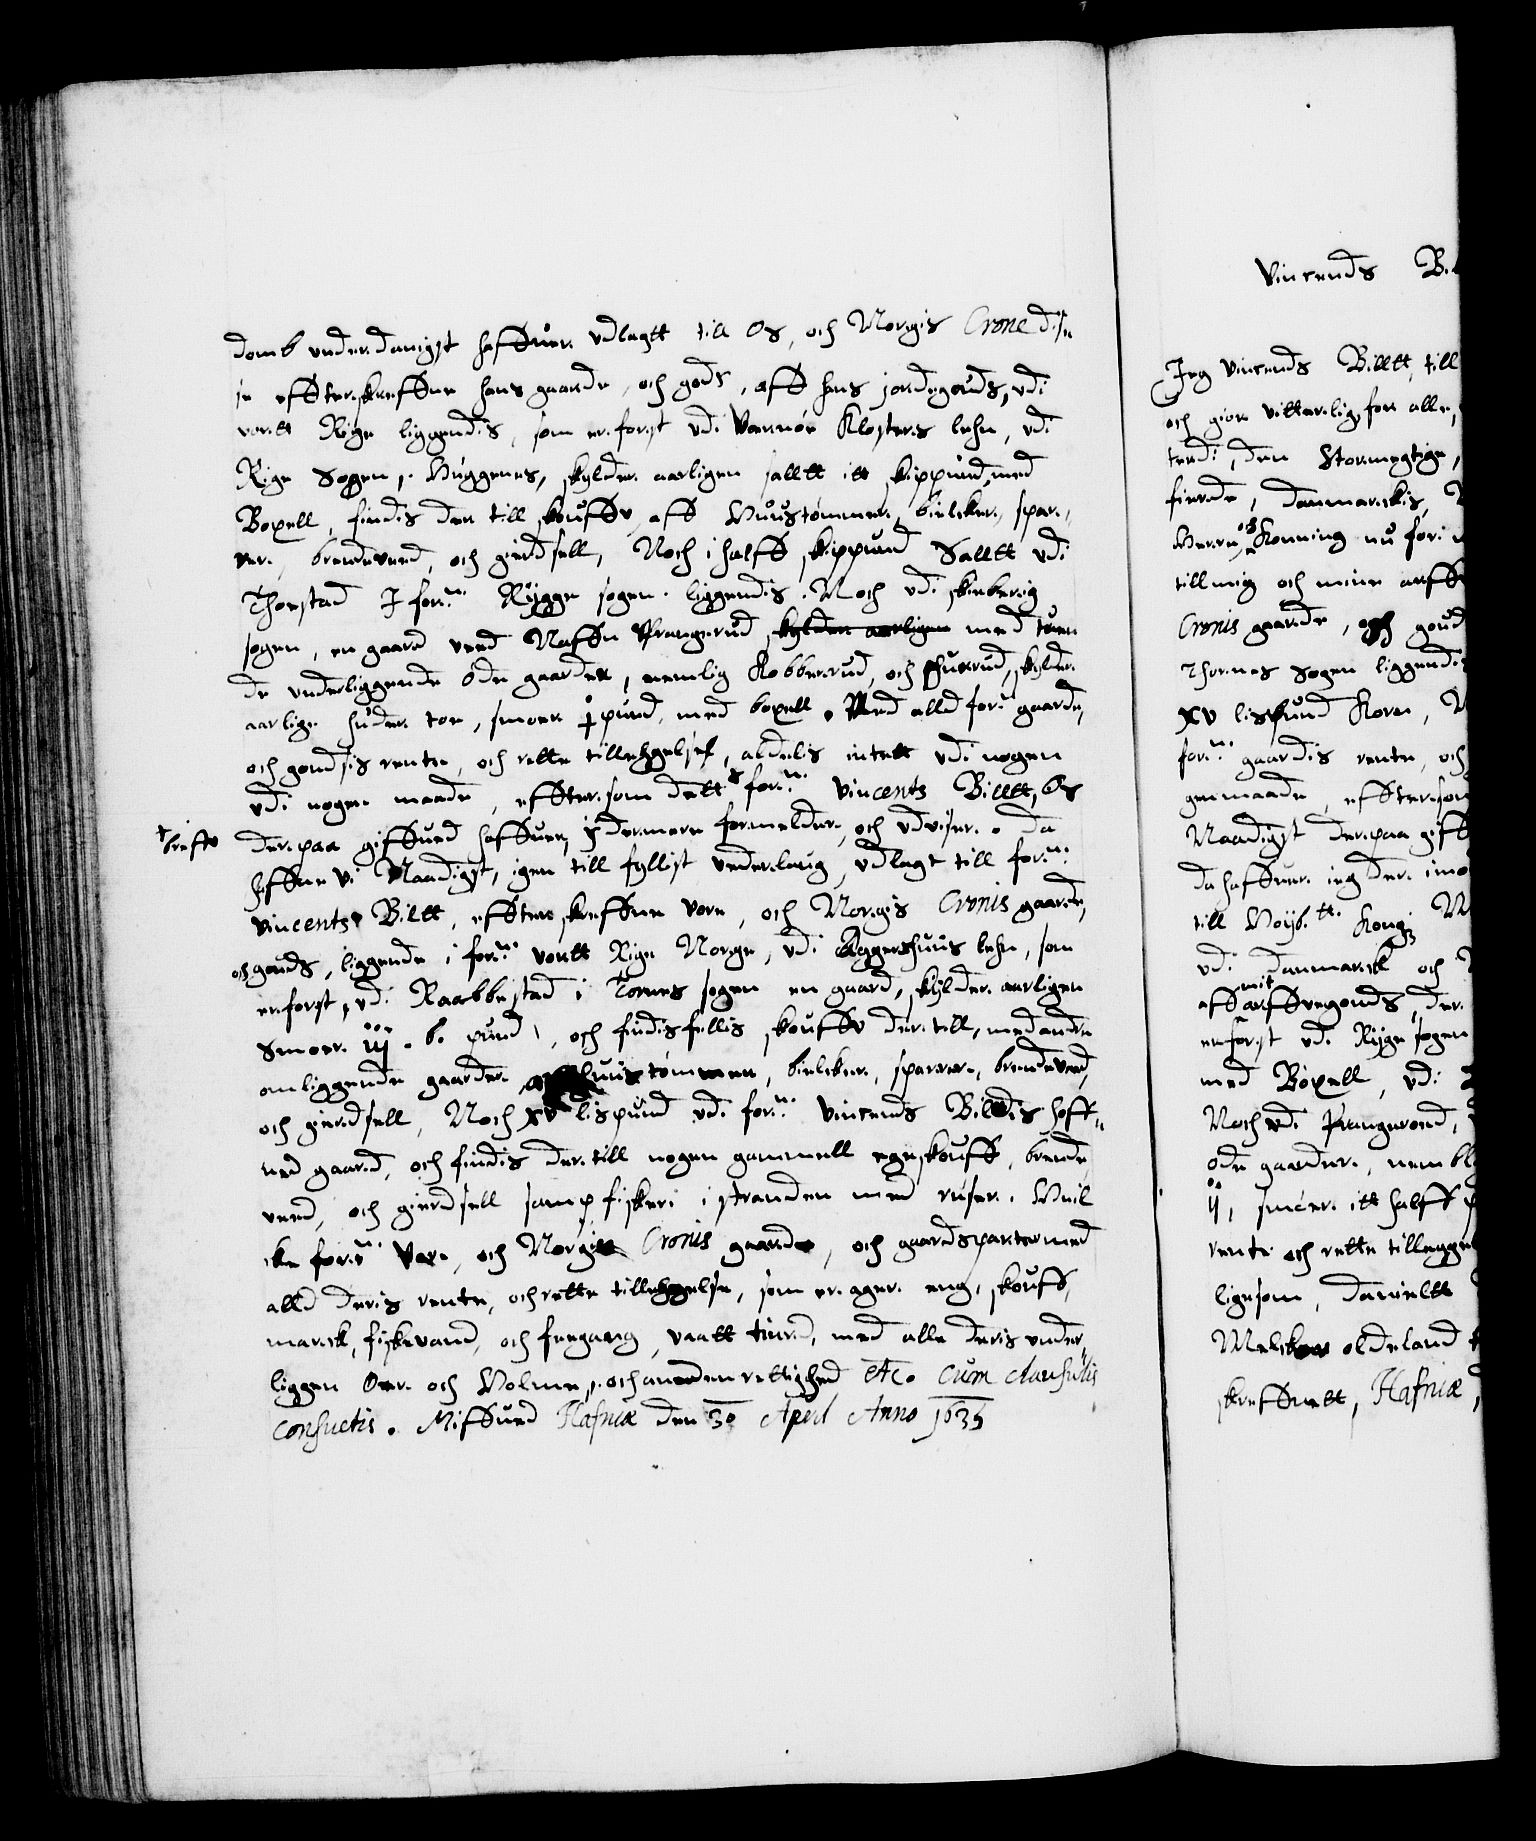 domb underdanigst haffuer udlagtt till Os, och Norgis Crone dis„
se effterskreffne hans gaarde, och gods, aff hans jordegouds, udi
vortt Rige liggendis, som er først udi Varnøe Klosters lehn, udi
Rige Sogen, Huggenes, skylder aarligen salltt itt skippund, med
Boxell, findis der till skouffe aff Huustømmer, bielcker, spar„
rer, brendeved, och gierdsell, Noch i halff skippund Salltt udi
Thorstad I for:ne Rygge sogen liggendis. Noch udi skieberig
sogen, en gaard ved Naffn Prangerud skylder aarligen med tuen
de underliggende öde gaarder, nemlig Kobberrud, och Huerud, skylder
aarlige huder toe, smoer pund, med boxell. Med alld for:ne gaarde,
och goudsis rente, och rette tilleggelse, aldelis intett udi nogen
udi nogen maade, efftersom dett for:ne Vincents Billtt, Os
breffue
derpaa giffued haffuer, ydermere formelder, och udviser. Da
haffue Vi Naadigst, igen till fyllist vederlaug, udlagt till for:ne
Vincents Biltt, effterskreffne Vore, och Norgis Cronis gaarde,
och gouds, liggende i for:ne vortt Rige Norge, udi Aggershuus lehn, som
er først, udi Raabbestad i Tornes sogen en gaard, skylder aarligen
Smoer iij. b. pund, och findis fellis skouffe der till, med andre
omliggende gaarder huustømmer, bielcker, sparrer, brendeved,
och gierdsell, Noch xv lispund udi for:ne Vincends Billdis hoff„
ued gaard, och findis der till nogen gammell egeskouff, brende
ved, och gierdsell samp fiskeri i stranden med ruser. Huil
cke for:ne Vore, och Norgis Cronis gaarde, och gaardsparter med
alld deris rente, och rette tilleggelse, som er ager eng, skouff,
marck, fiskevand, och feegang, vaatt tiurd, med alle deris under„
liggen Øer och Holme, och anden rettighed etc. cum clausulis
consuetis. Giffued Hafniæ den 30 April Anno 1635
Vincends B.
Jeg Vincends Billtt, till
och giør vitterlig for alle,
tend:, den Stormegtige,
fierde, Danmarckis,
Herre, och Konning nu for:
till mig och mine arff
Cronis gaarde, och goud
Thornes Sogen liggendis
xv lispund Korn,
for:ne gaardis rente, och
gen maade, efftersom
Naadigst derpaa giff
da haffuer ieg der imo
till Høyb:tt Kong
udi Danmarck och
aff mit arffuegouds, der
er først udi Rijge sogen
med Boxell, udi
Noch udi Prangeroud,
øde gaarder, nembl
ij, smøer itt halff p
rente och rette tillegge
ligesom, danieltt
Melcker oldeland
skreffuett, Hafniæ,